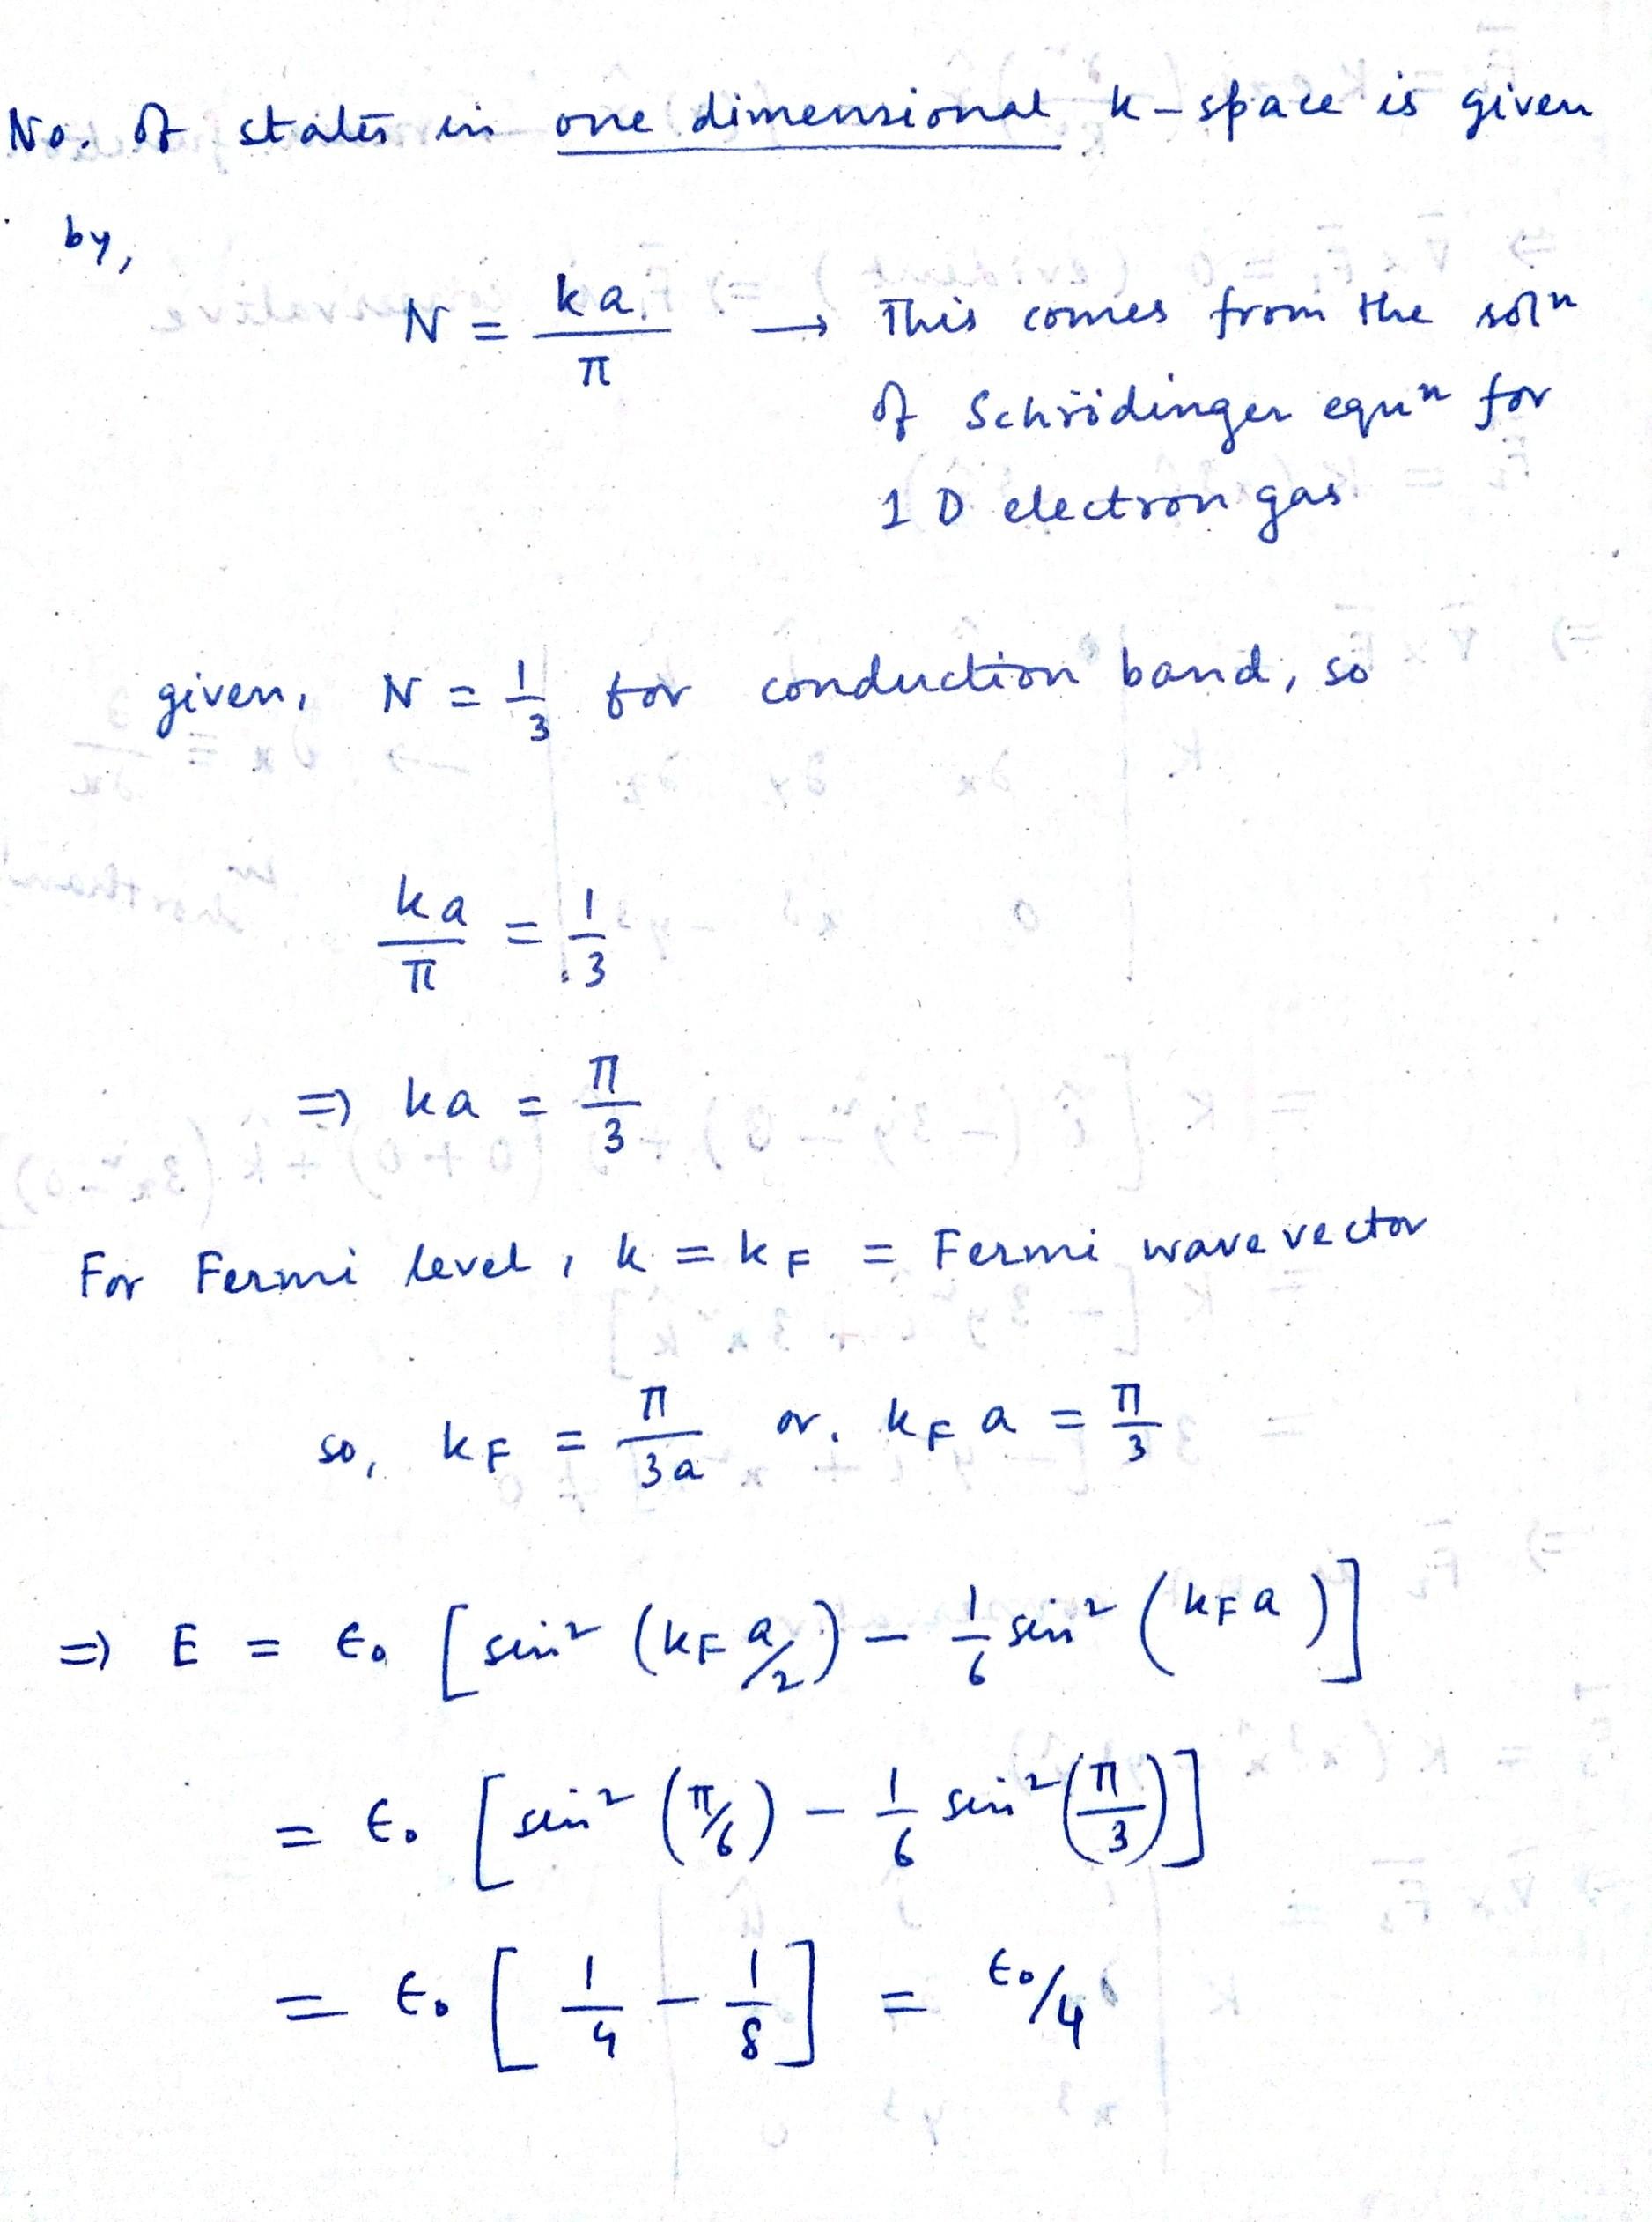 No. of states in one dimensional k-space is given
by,
N = ka/π → This comes from the solⁿ
of Schrödinger equⁿ for
1 D electron gas.
given, N = 1/3 for conduction band, so
ka/π = 1/3
⇒ ka = π/3
For Fermi level, k = k_F = Fermi wave vector
so, k_F = π/3a or, k_F a = π/3
⇒ E = ϵ₀ [sin² (k_F a/2) − 1/6 sin² (k_F a)]
= ϵ₀ [sin² (π/6) − 1/6 sin² (π/3)]
= ϵ₀ [1/4 − 1/8] = ϵ₀/4